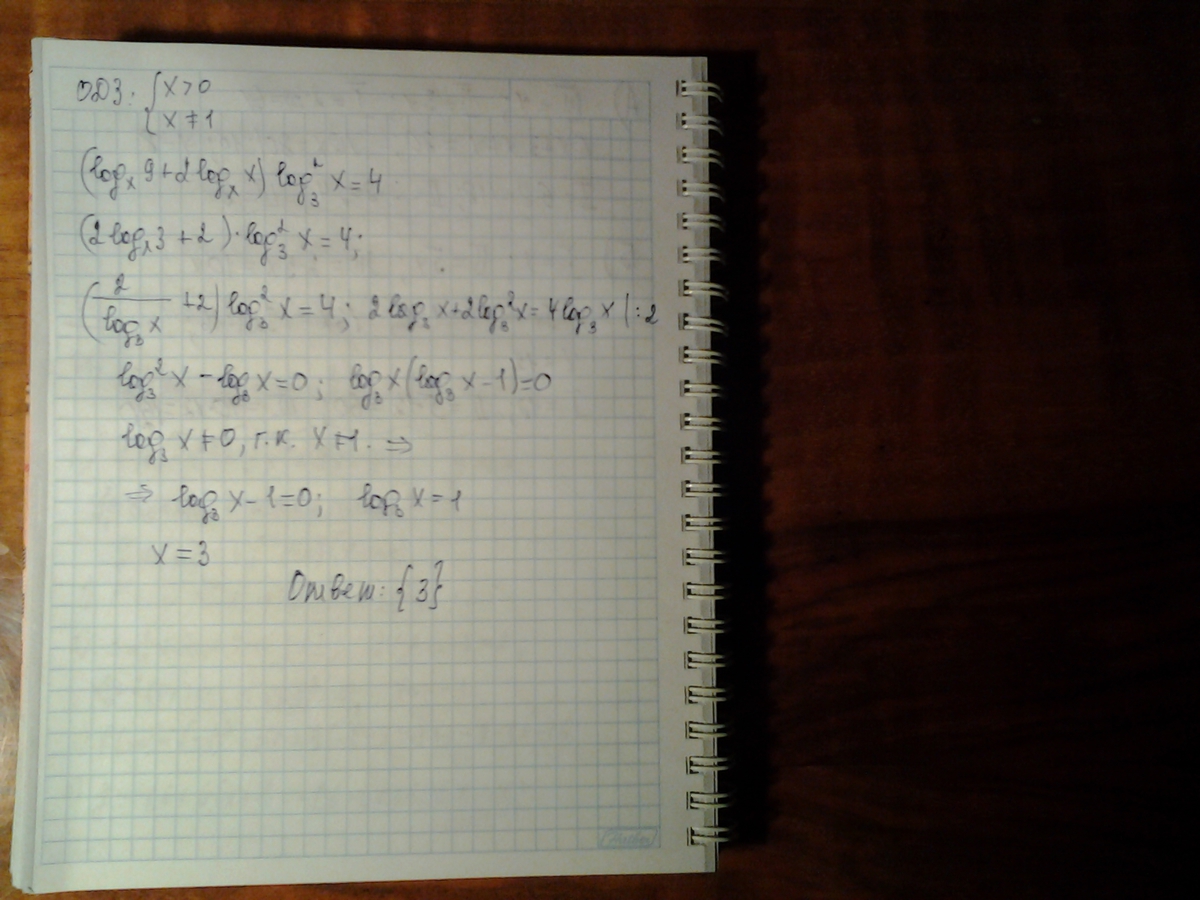 ОДЗ: { x > 0
x ≠ 1
(logₓ 9 + 2 logₓ x) log₃² x = 4
(2 logₓ 3 + 2) · log₃² x = 4;
(2/log₃ x + 2) log₃² x = 4; 2 log₃ x + 2 log₃² x = 4 log₃ x | : 2
log₃² x - log₃ x = 0; log₃ x (log₃ x - 1) = 0
log₃ x ≠ 0, т.к. x ≠ 1. ⇒
⇒ log₃ x - 1 = 0; log₃ x = 1
x = 3
Ответ: {3}